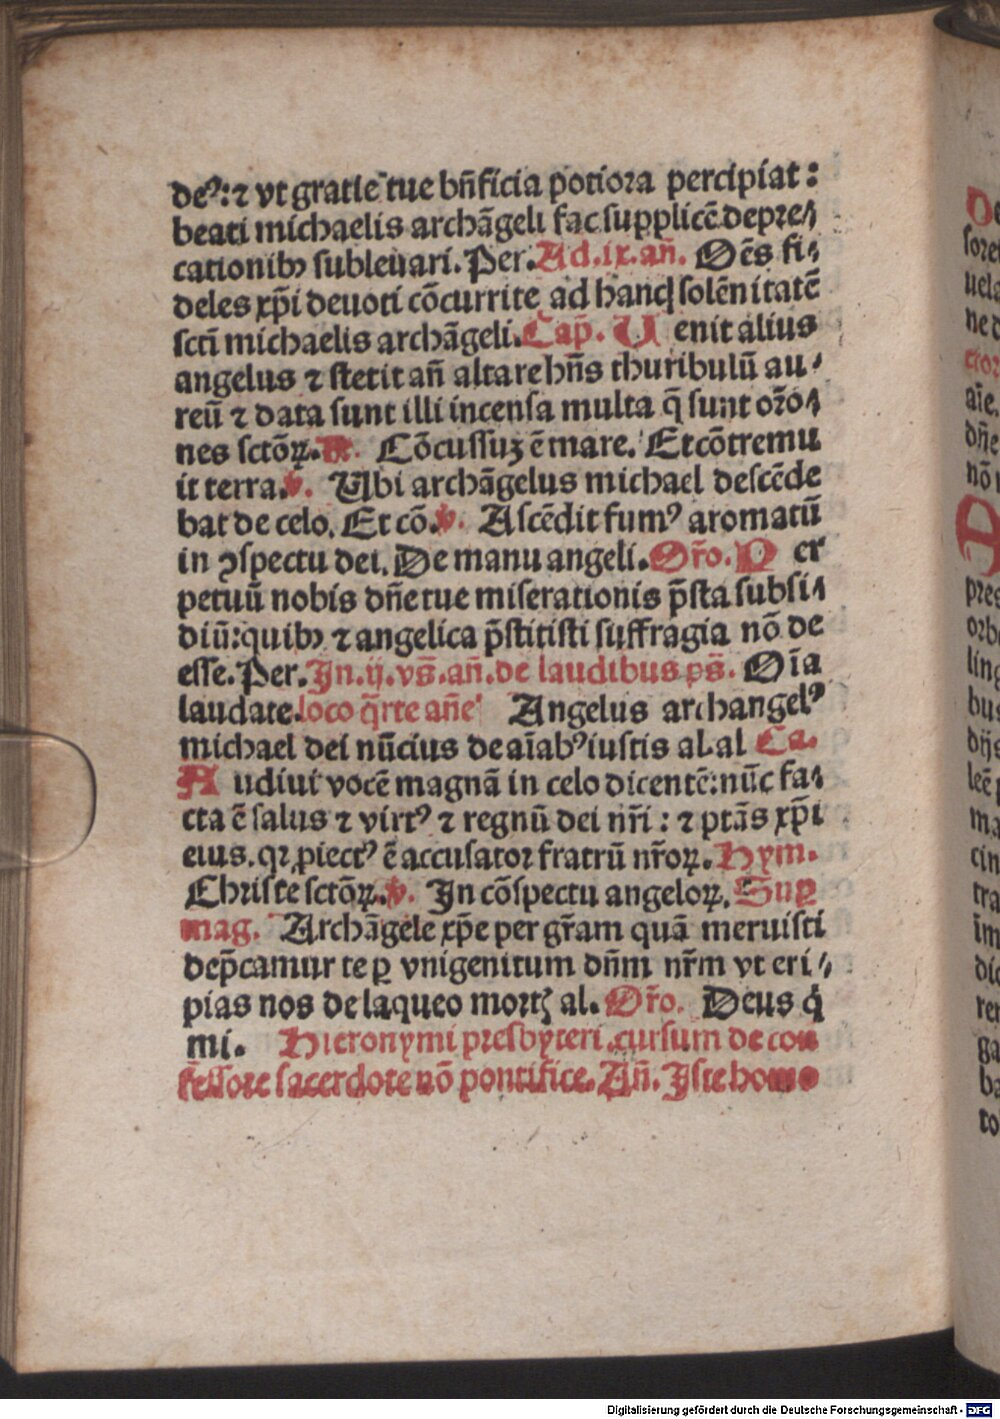 deꝰ: ⁊ vt gratie tue bn̄ficia potiora percipiat:
beati michaelis archāgeli fac supplicē depre⸗
cationibꝫ subleuari. Per. Ad.ix.an̄. Oēs fi⸗
deles xp̄i deuoti cōcurrite ad hancꝗ solēnitatē
scti michaelis archāgeli. Cap̄. Uenit alius
angelus ⁊ stetit an̄ altare hn̄s thuribulū au⸗
reū ⁊ data sunt illi incensa multa q̄ sunt or̄o⸗
nes sctōꝝ. ℟. Cōcussuꝫ ē mare. Et cōtremu
it terra. ℣. Ubi archāgelus michael descēde
bat de celo. Et cō. ℣. Ascēdit fumꝰ aromatū
in ꝯspectu dei. De manu angeli. Or̄o. Per
petuū nobis dn̄e tue miserationis p̄sta subsi⸗
diū: quibꝫ ⁊ angelica p̄stitisti suffragia nō de
esse. Per. In.ij.vs̄.an̄.de laudibus ps̄. Oīa
laudate. loco q̄rte an̄e Angelus archangelꝰ
michael dei nūcius de aīabꝰ iustis al.al Ca.
Audiui vocē magnā in celo dicentē: nūc fa⸗
cta ē salus ⁊ virtꝰ ⁊ regnū dei nr̄i: ⁊ ptās xp̄i
eius. qꝛ ꝓiectꝰ ē accusator fratrū nr̄oꝝ. Hym.
Christe sctōꝝ. ℣. In cōspectu angeloꝝ. Sup
mag. Archāgele xp̄e per gr̄am quā meruisti
dep̄camur te ꝑ vnigenitum dn̄m nr̄m vt eri⸗
pias nos de laqueo mortꝭ al. Or̄o. Deus q̇
mi. Hieronymi presbyteri.cursum de con
fessore sacerdote nō pontifice. An̄. Iste homo
Digitalisierung gefördert durch die Deutsche Forschungsgemeinschaft - DFG